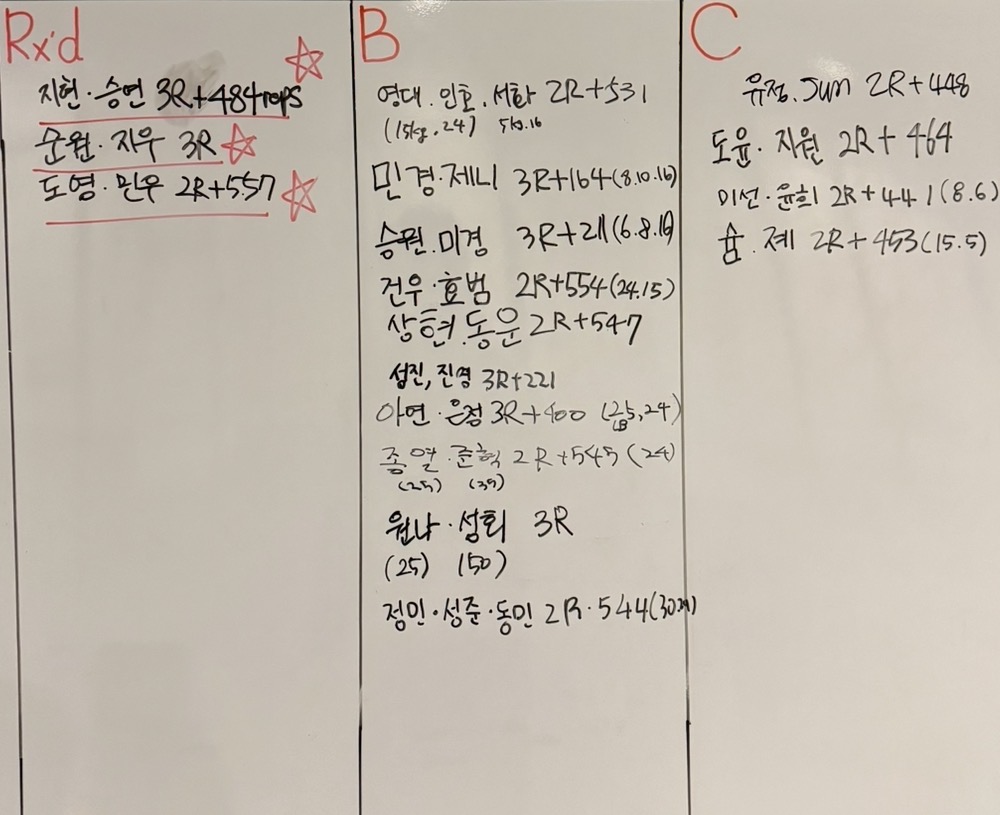 Rx'd
지현·승연 3R+484reps
순원·지우 3R
도영·민우 2R+557
B
영대.인호.서화 2R+531
(15kg,24) 5kg.16
민경·제니 3R+164(8.10.16)
승원.미경 3R+211(6.8.16)
건우·효범 2R+554(24.15)
상현.동운 2R+547
섬진,진영 3R+221
아연·은정 3R+400 (24)
종열·준혁 2R+545(24)
(25) (35)
원나·섬회 3R
(25) (50)
정민·성준·동민 2R·544(30개)
C
유정.Jun 2R+448
도윤·지원 2R+464
미선·윤희 2R+441(8.6)
숨.제 2R+453(15.5)